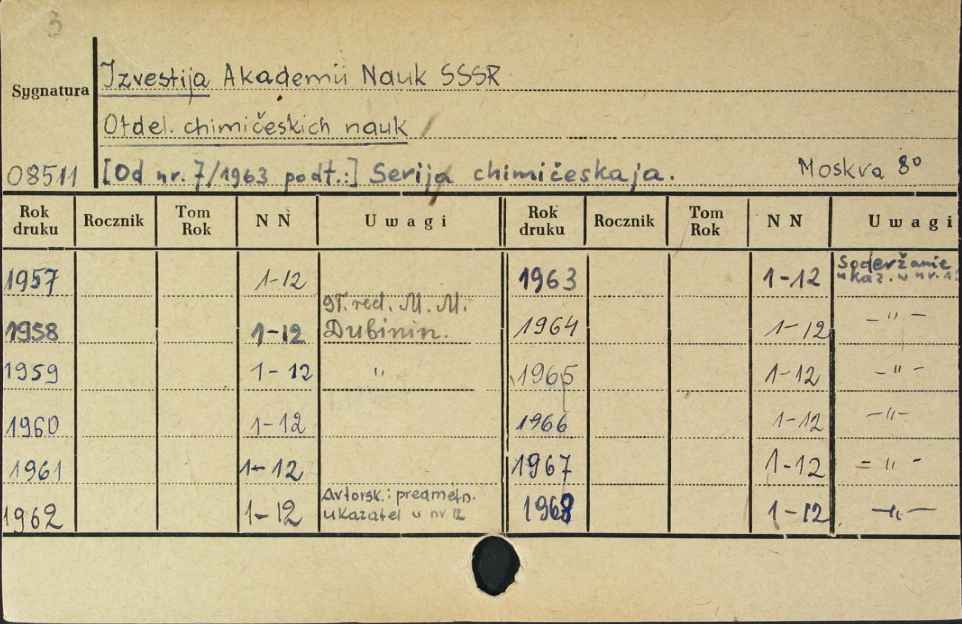 3
Izvestija Akademii Nauk SSSR
Sygnatura
Otdel. chimičeskich nauk
08511 [Od nr. 7/1963 podt.:] Serija chimičeskaja. Moskva 8°
Rok druku Rocznik Tom Rok N N Uwagi Rok druku Rocznik Tom Rok N N Uwagi
1957 1-12 1963 1-12 Soderžanie
ukaz. w nr. 12
gł. red. M. M.
1958 1-12 Dubinin. 1964 1-12 -"-
1959 1-12 " 1965 1-12 -"-
1960 1-12 1966 1-12 -"-
1961 1-12 1967 1-12 -"-
Avtorsk. i predmetn.
1962 1-12 ukazatel w nr 12 1968 1-12 -"-